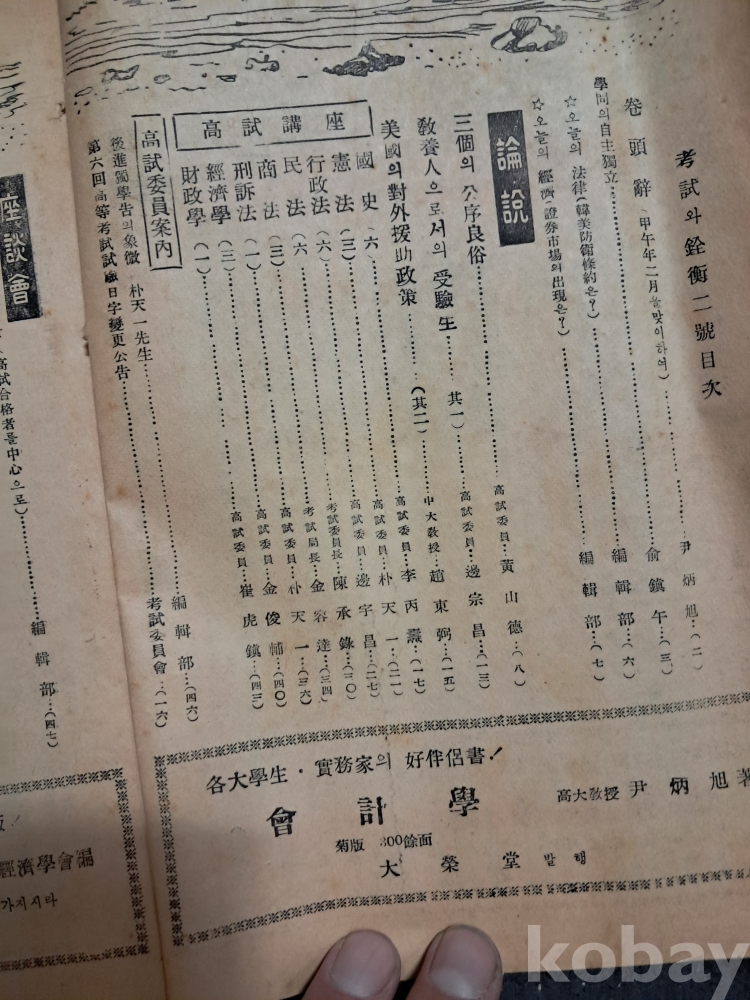 考試와 銓衡 二號目次
卷頭辭 (甲午年二月을맞이하여)……尹炳旭…(二)
學問의 自主獨立……兪鎭午…(三)
☆오늘의 法律(韓美防衛條約은?)……編輯部…(六)
☆오늘의 經濟(證券市場의 出現은?)……編輯部…(七)
論說
三個의 公序良俗……高試委員…黃山德…(八)
敎養人으로서의 受驗生……其一)…高試委員…邊宗昌…(一三)
美國의 對外援助政策……(其二)…中大敎授…趙東弼…(一五)
高試講座
國史(六)……高試委員…李丙燾…(一七)
憲法(三)……高試委員…朴天一…(二一)
行政法(六)……高試委員…邊宇昌…(二七)
民法(六)……考試委員長…陳承錄…(三〇)
商法(三)……考試局長…金容達…(三四)
刑訴法(一)……高試委員…朴天一…(三六)
經濟學(三)……高試委員…金俊輔…(四〇)
財政學(一)……高試委員…崔虎鎭…(四三)
高試委員案內
後進獨學告의象徵 朴天一先生……編輯部…(四六)
第六回高等考試試驗日字變更公告……考試委員會…(一六)
座談會
高試合格者를中心으로)……編輯部…(四七)
各大學生・實務家의 好伴侶書!
會計學
高大敎授 尹炳旭著
菊版 300餘面
大榮堂 발행
經濟學會編
가지시라
kobay